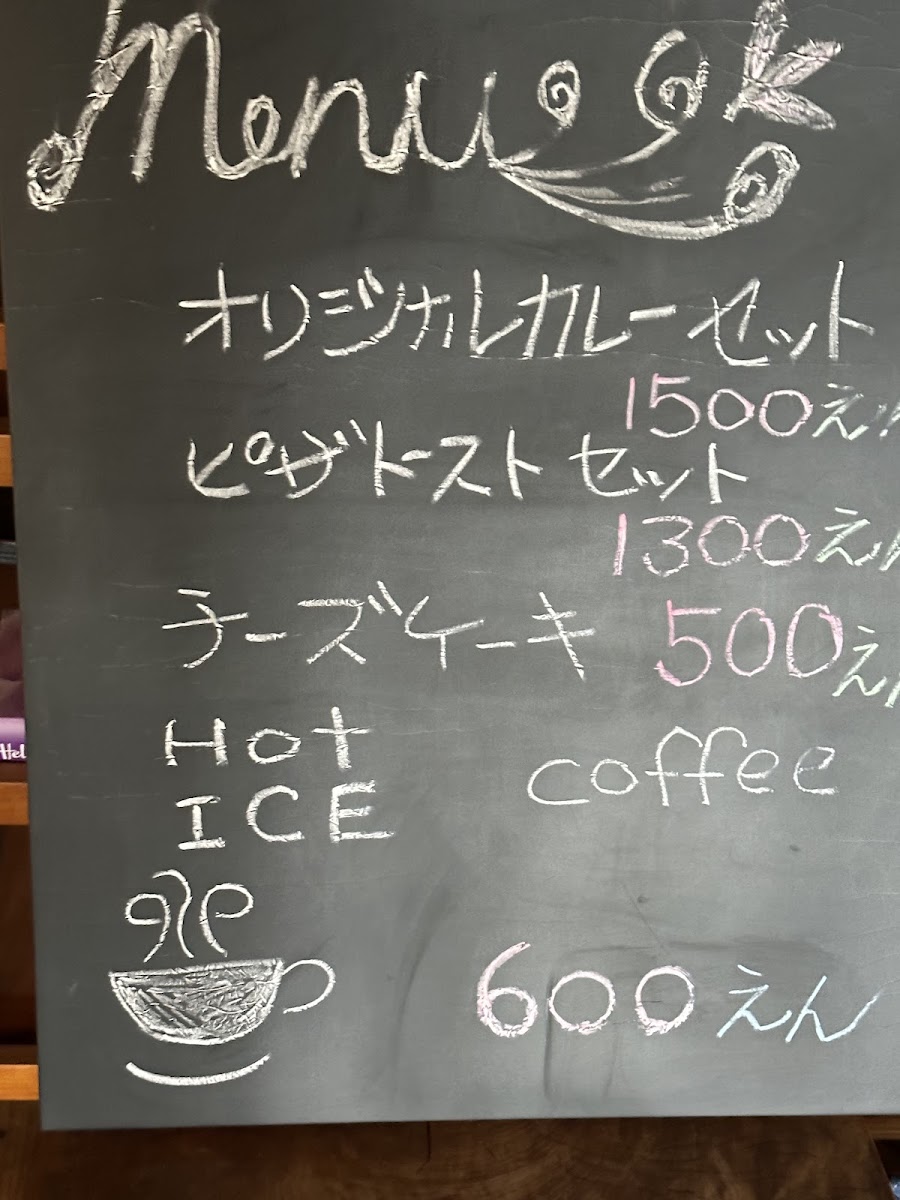 Menu
オリジナルカレーセット
1500えん
ピザトースト セット
1300えん
チーズケーキ 500えん
Hot
ICE coffee
600えん
Hel